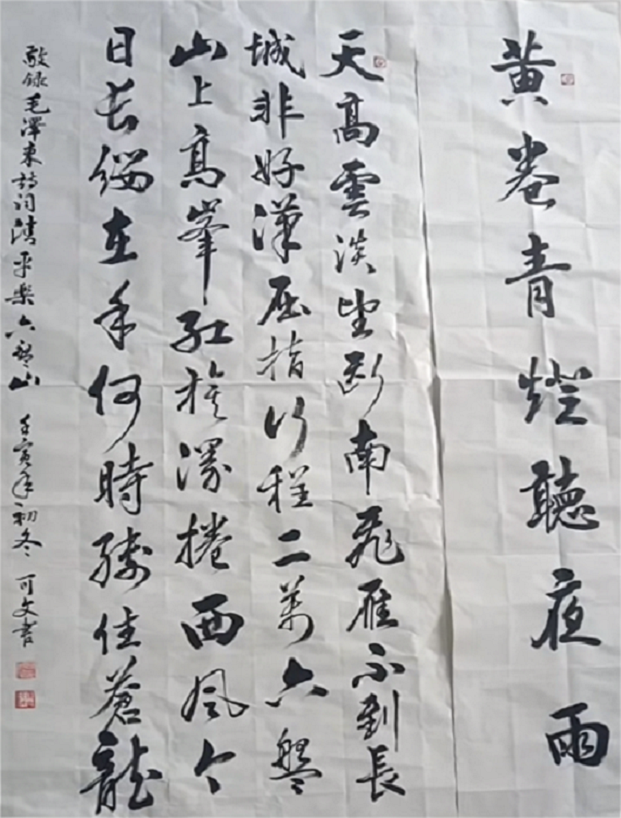 黄卷青燈聽夜雨
天高雲淡望斷南飛雁不到長
城非好漢屈指行程二萬六盤
山上高峰紅旗漫捲西風今
日長纓在手何時縛住蒼龍
敬録毛澤東詩詞清平樂六盤山 壬寅年初冬 可文書